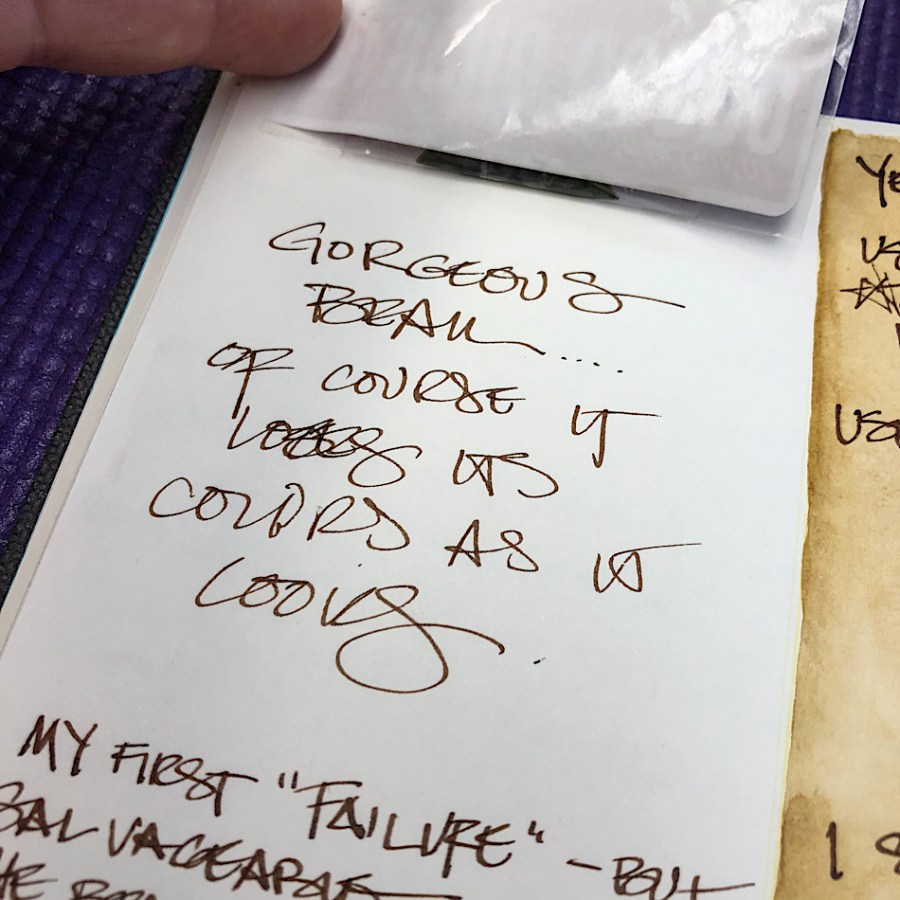 GORGEOUS
BEAN ....
OF COURSE IT
LOSES ITS
COLORS AS IT
COOKS.
MY FIRST "FAILURE" - BUT
SALVAGEABLE